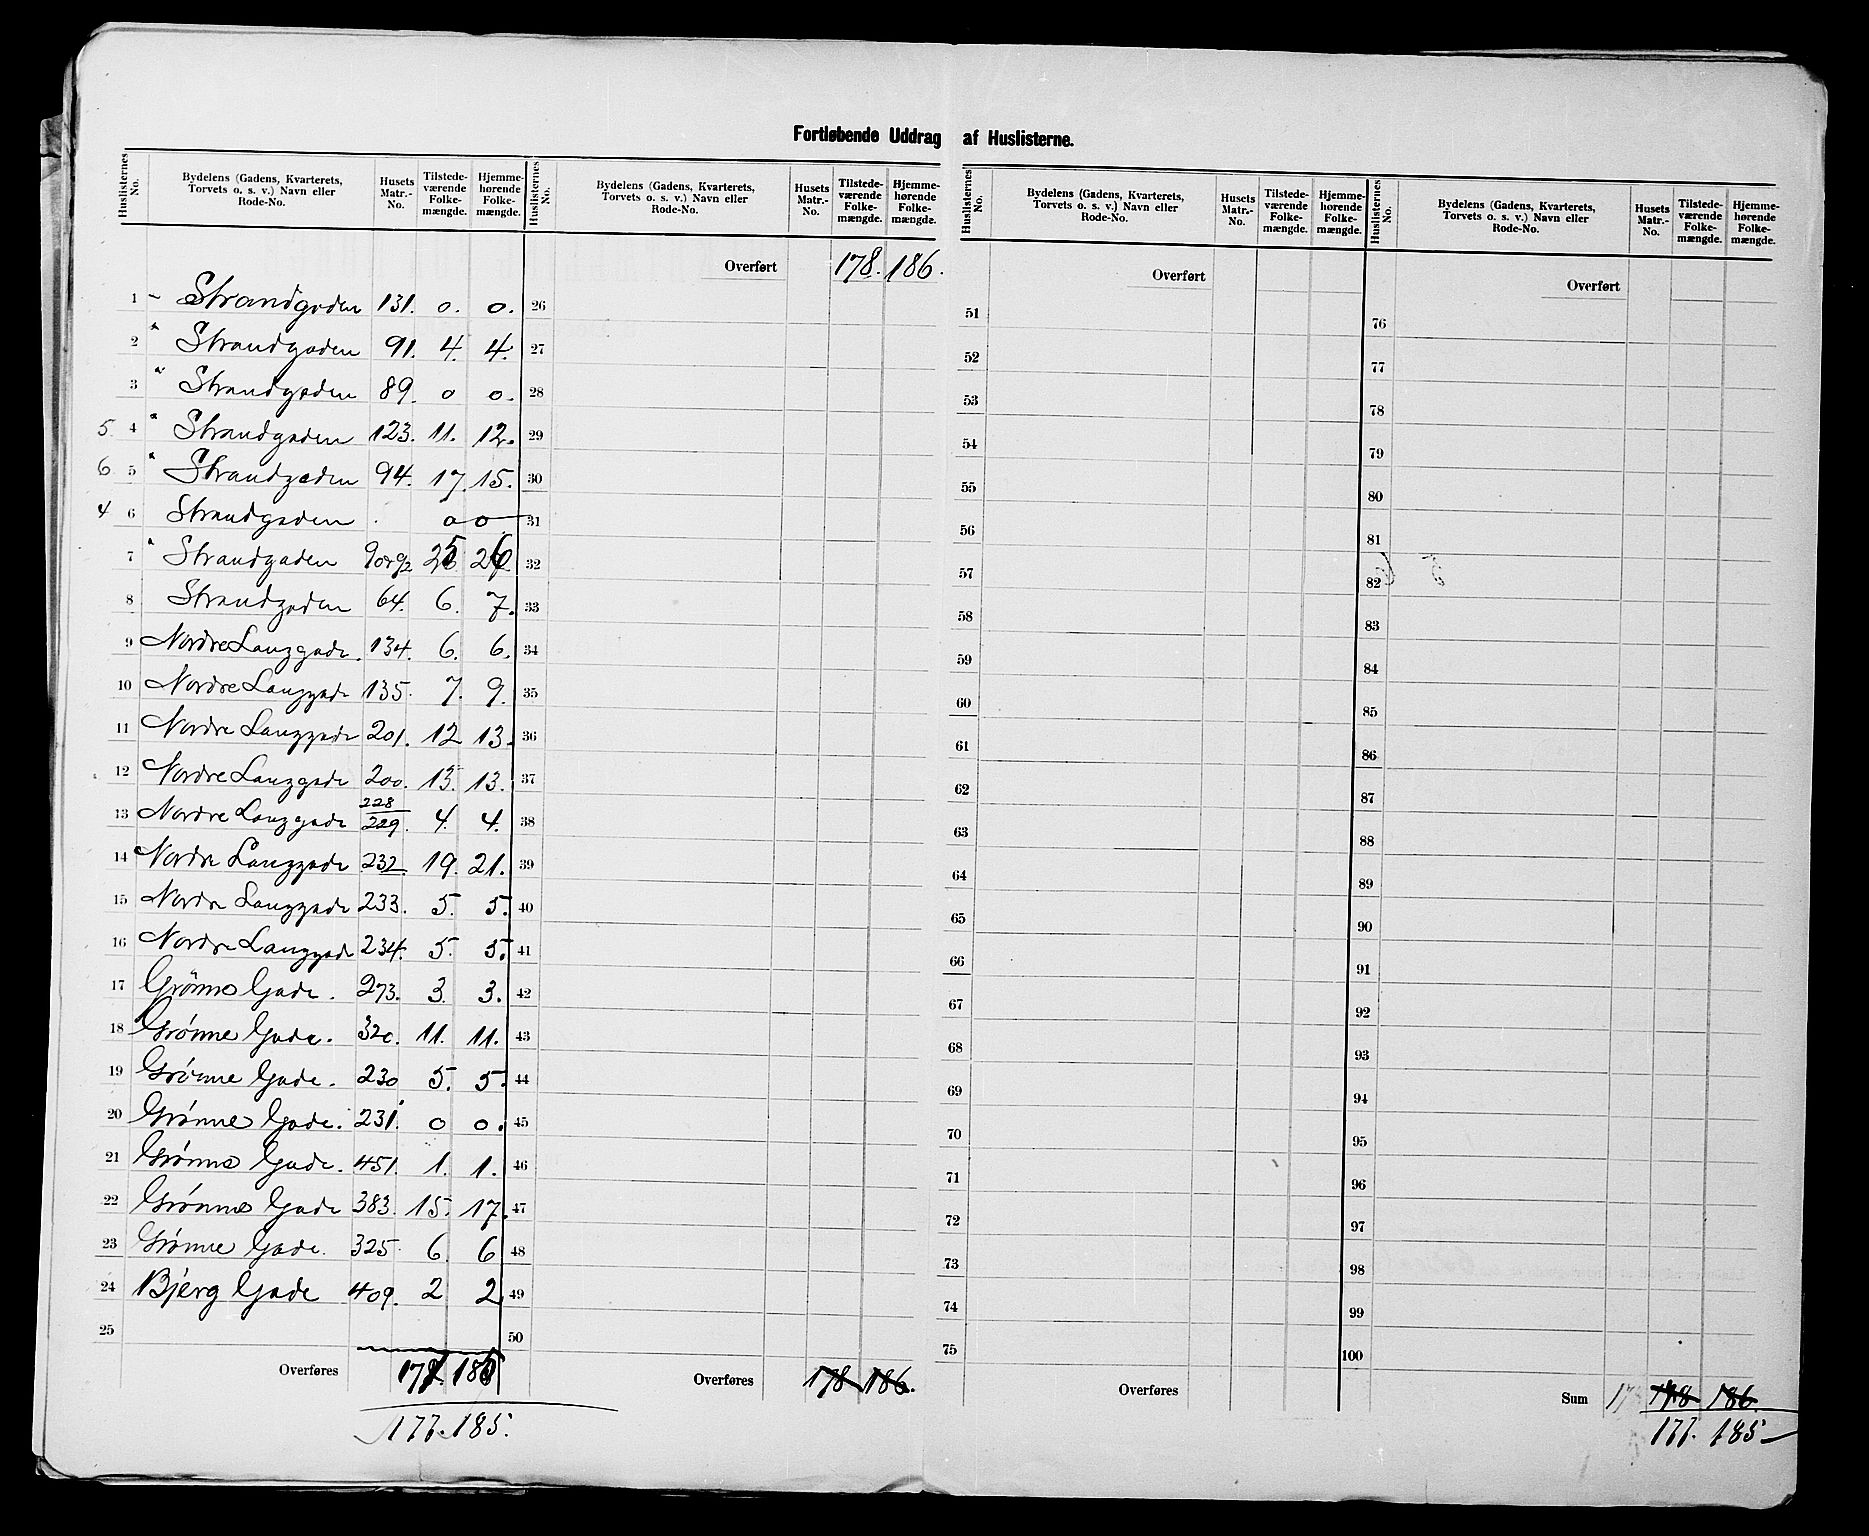 Fortløbende Uddrag af Huslisterne.
Huslisternes No. | Bydelens (Gadens, Kvarterets, Torvets o. s. v.) Navn eller Rode-No. | Husets Matr.-No. | Tilstedeværende Folkemængde. | Hjemmehørende Folkemængde.
1 – Strandgaden 131. 0. 0.
2 " Strandgaden 91. 4. 4.
3 " Strandgaden 89. 0 0.
5 4 " Strandgaden 123. 11. 12.
6 5 " Strandgaden 94. 17. 15.
4 6 Strandgaden . 0 0
7 " Strandgaden 90og92 25 26
8 Strandgaden 64. 6. 7.
9 Nordre Langgade. 134. 6. 6.
10 Nordre Langgade 135. 7. 9.
11 Nordre Langgade 201. 12 13.
12 Nordre Langgade 200. 13. 13.
13 Nordre Langgade 228/229. 4. 4.
14 Nordre Langgade 232. 19. 21.
15 Nordre Langgade 233. 5. 5.
16 Nordre Langgade 234. 5. 5.
17 Grönne Gade. 273. 3. 3.
18 Grønne Gade. 320. 11. 11.
19 Grønne Gade. 230 5. 5.
20 Grønne Gade. 231. 0 0.
21 Grønne Gade. 451. 1. 1.
22 Grønne Gade 383. 15. 17.
23 Grønne Gade. 325. 6. 6
24 Bjerg Gade 409. 2 2
25
Overføres 177. 185
177. 185.
Huslisternes No. | Bydelens (Gadens, Kvarterets, Torvets o. s. v.) Navn eller Rode-No. | Husets Matr.-No. | Tilstedeværende Folkemængde. | Hjemmehørende Folkemængde.
Overført 178. 186.
26
27
28
29
30
31
32
33
34
35
36
37
38
39
40
41
42
43
44
45
46
47
48
49
50
Overføres 178 186.
Huslisternes No. | Bydelens (Gadens, Kvarterets, Torvets o. s. v.) Navn eller Rode-No. | Husets Matr.-No. | Tilstedeværende Folkemængde. | Hjemmehørende Folkemængde.
Overført
51
52
53
54
55
56
57
58
59
60
61
62
63
64
65
66
67
68
69
70
71
72
73
74
75
Overføres
Huslisternes No. | Bydelens (Gadens, Kvarterets, Torvets o. s. v.) Navn eller Rode-No. | Husets Matr.-No. | Tilstedeværende Folkemængde. | Hjemmehørende Folkemængde.
Overført
76
77
78
79
80
81
82
83
84
85
86
87
88
89
90
91
92
93
94
95
96
97
98
99
100
Sum 178 186.
177. 185